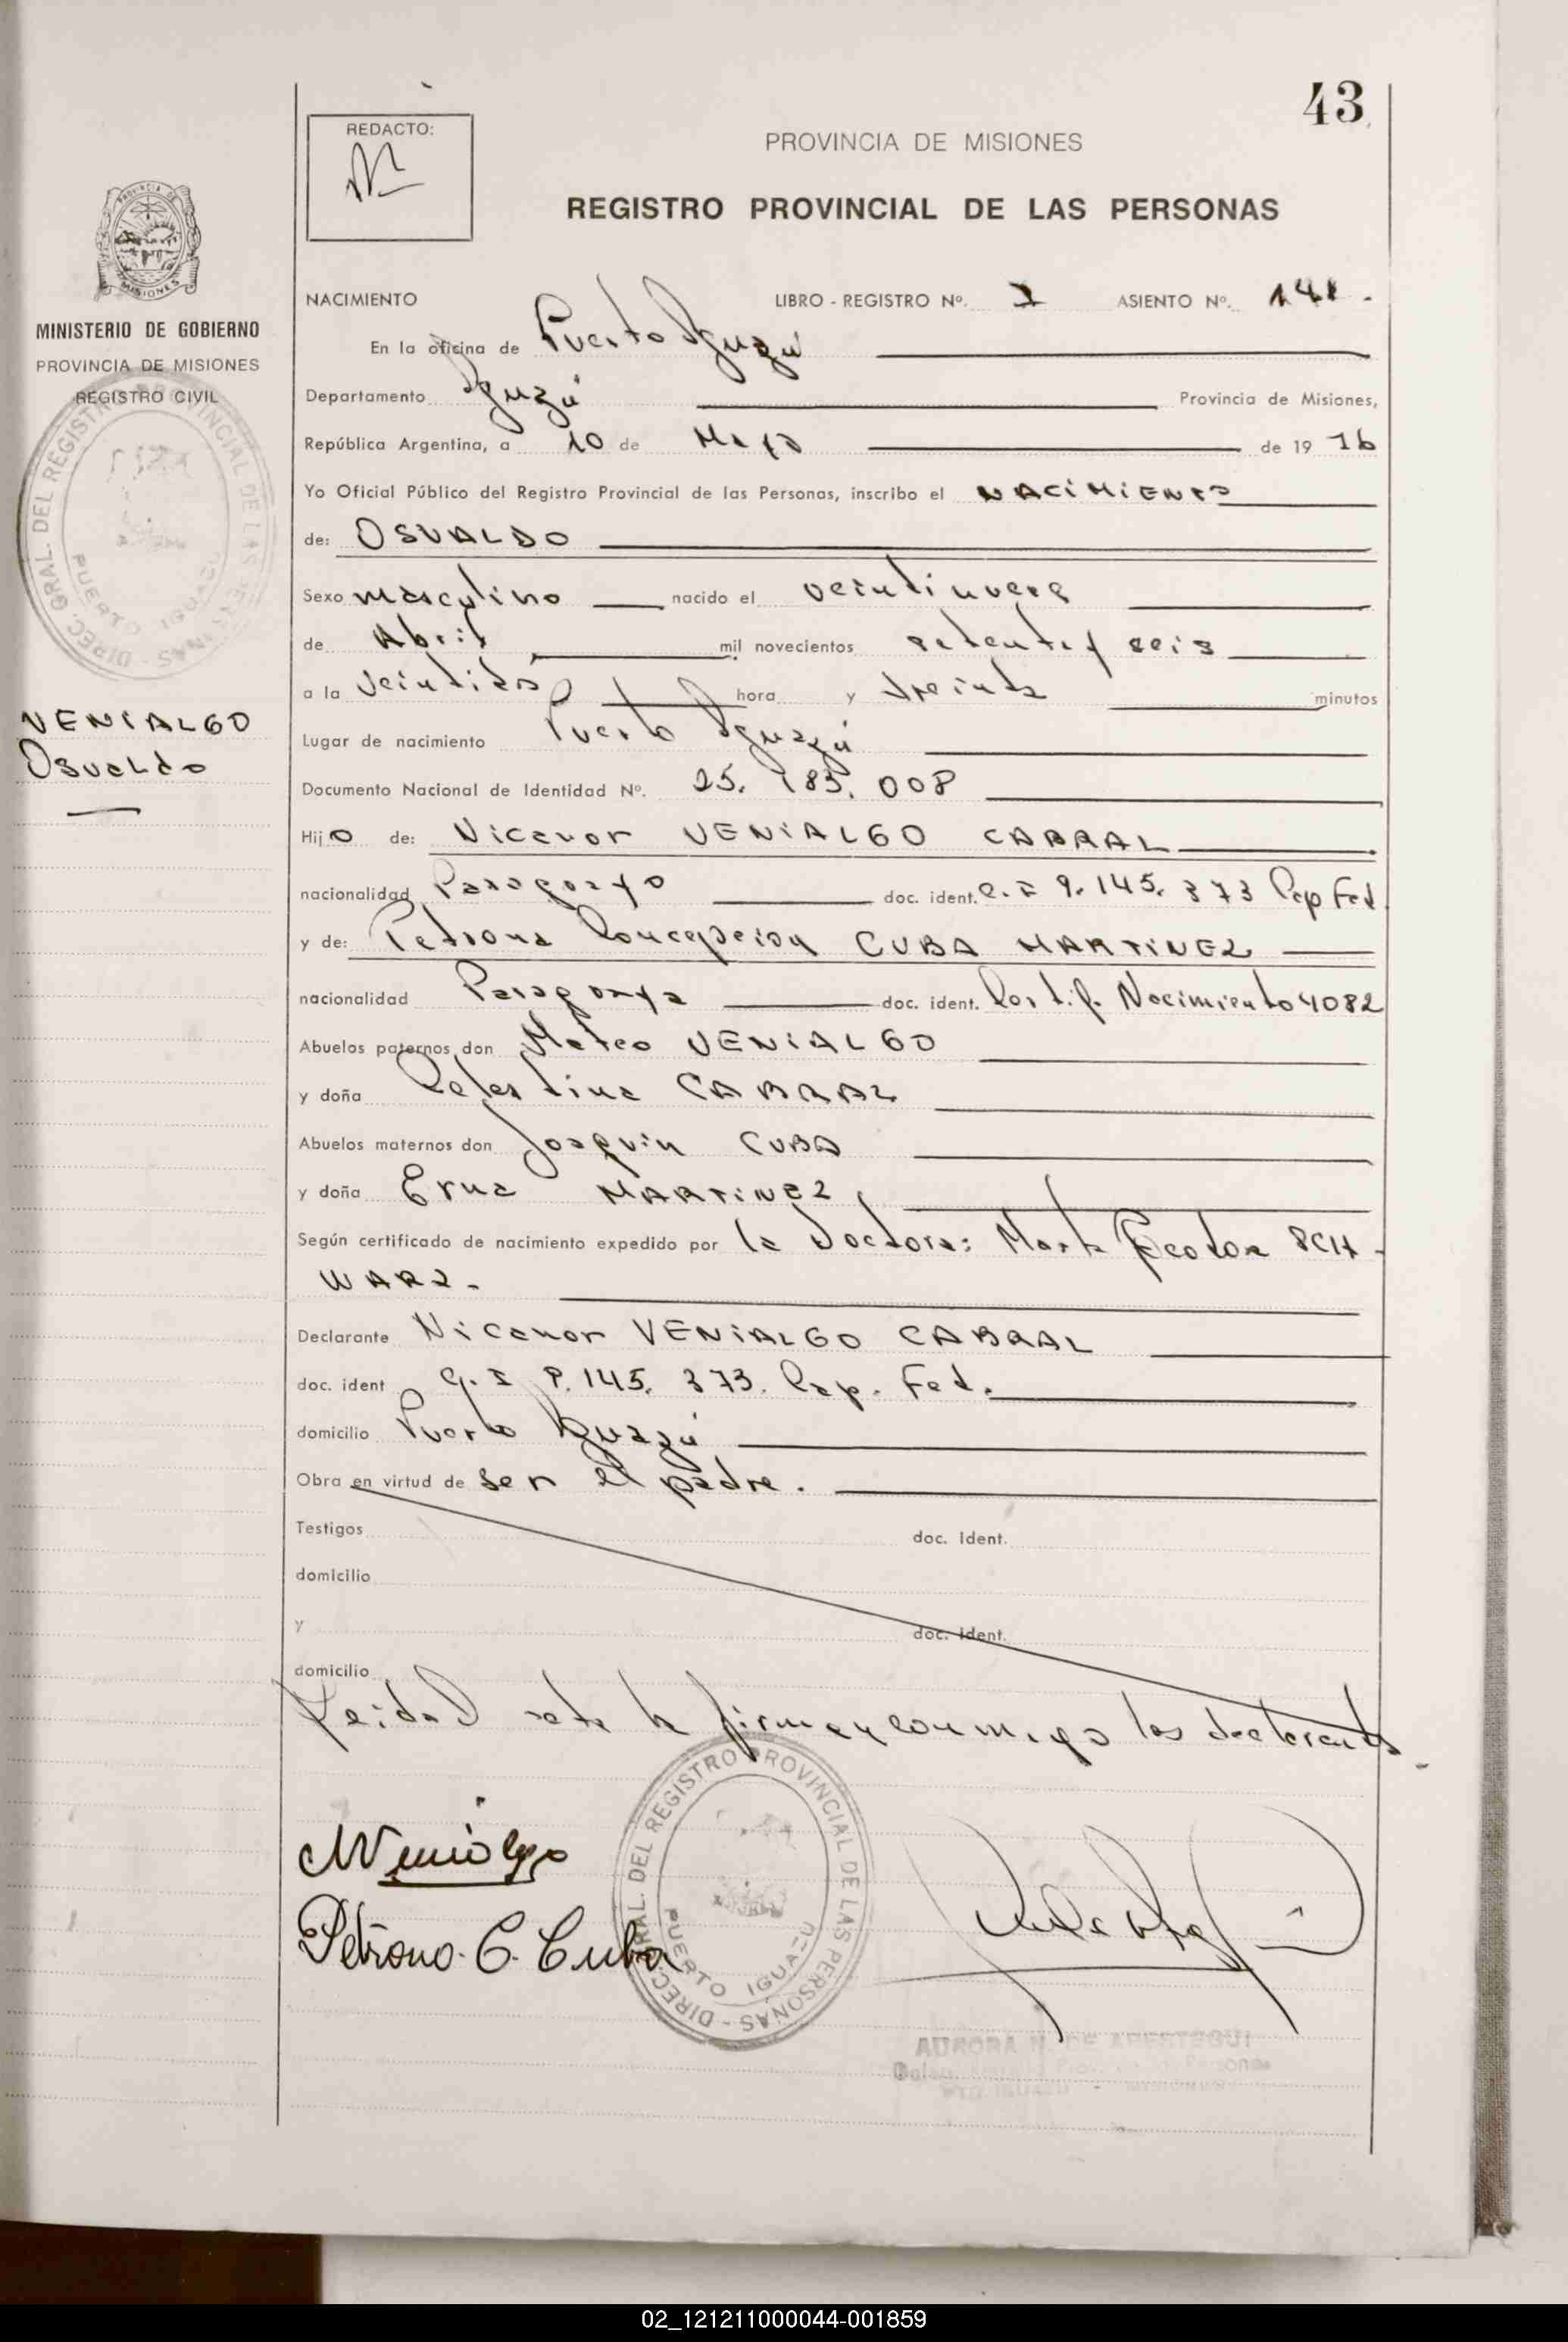 43
REDACTO:
PROVINCIA DE MISIONES
REGISTRO PROVINCIAL DE LAS PERSONAS
NACIMIENTO LIBRO - REGISTRO Nº. I ASIENTO Nº. 141.
En la oficina de Puerto Iguazú
Departamento Iguazú Provincia de Misiones,
República Argentina, a 10 de Mayo de 19 76
Yo Oficial Público del Registro Provincial de las Personas, inscribo el NACIMIENTO
de: OSVALDO
Sexo masculino nacido el veintinueve
de Abril mil novecientos setenta y seis
a la veintidós hora y treinta minutos
Lugar de nacimiento Puerto Iguazú
Documento Nacional de Identidad Nº. 25. 183. 008
Hijo de: Nicanor VENIALGO CABRAL
nacionalidad Paraguayo doc. ident. C. I 9. 145. 373 Cap Fed
y de: Petrona Concepción CUBA MARTINEZ
nacionalidad Paraguaya doc. ident. Certif. Nacimiento 4082
Abuelos paternos don Mateo VENIALGO
y doña Celestina CABRAL
Abuelos maternos don Joaquín CUBA
y doña MARTINEZ
Según certificado de nacimiento expedido por la Doctora: Marta SCH-
WARZ.
Declarante Nicanor VENIALGO CABRAL
doc. ident C. I 9. 145. 373. Cap. Fed.
domicilio Puerto Iguazú
Obra en virtud de ser el padre.
Testigos doc. ident.
domicilio
y doc. ident.
domicilio
Leída el acta la firman conmigo los declarantes.
NVenialgo
Petrona. C. Cuba
DIREC. GRAL. DEL REGISTRO PROVINCIAL DE LAS PERSONAS -
PUERTO IGUAZU
AURORA N. DE
PROVINCIA DE MISIONES
MINISTERIO DE GOBIERNO
PROVINCIA DE MISIONES
REGISTRO CIVIL
DIREC. GRAL. DEL REGISTRO PROVINCIAL DE LAS PERSONAS -
PUERTO IGUAZU
VENIALGO
Osvaldo
02_121211000044-001859